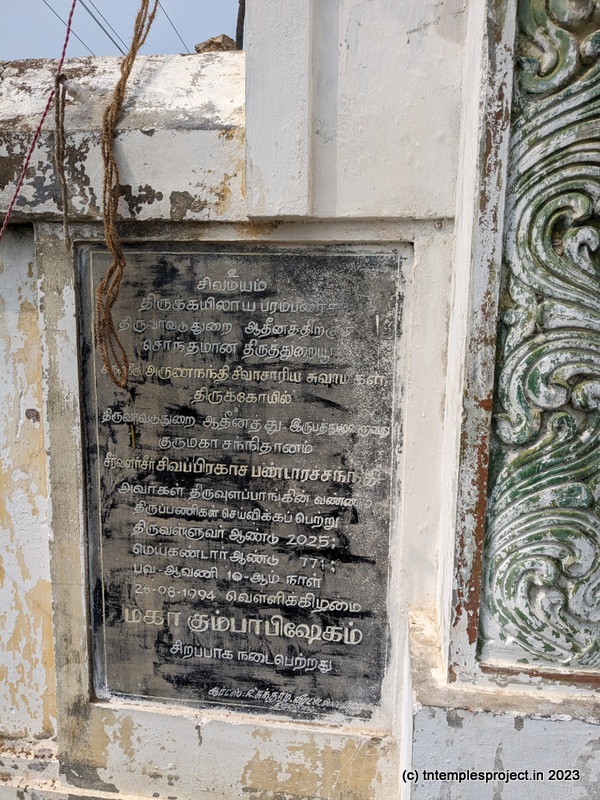 சிவமயம்
திருக்கயிலாய பரம்பரைத்
திருவாவடுதுறை ஆதீனத்திற்குச்
சொந்தமான திருத்துறையூர்
அருணந்தி சிவாசாரிய சுவாமிகள்
திருக்கோயில்
திருவாவடுதுறை ஆதீனத்து இருபத்துமூன்றாவது
குருமகா சந்நிதானம்
சீர்வளர்சீர் சிவப்பிரகாச பண்டாரச்சந்நதி
அவர்கள் திருவுளப்பாங்கின் வண்ணம்
திருப்பணிகள் செய்விக்கப் பெற்று
திருவள்ளுவர் ஆண்டு 2025;
மெய்கண்டார் ஆண்டு 771;
பவ-ஆவணி 10-ஆம் நாள்
26-08-1994 வெள்ளிக்கிழமை
மகா கும்பாபிஷேகம்
சிறப்பாக நடைபெற்றது
(c) tntemplesproject.in 2023